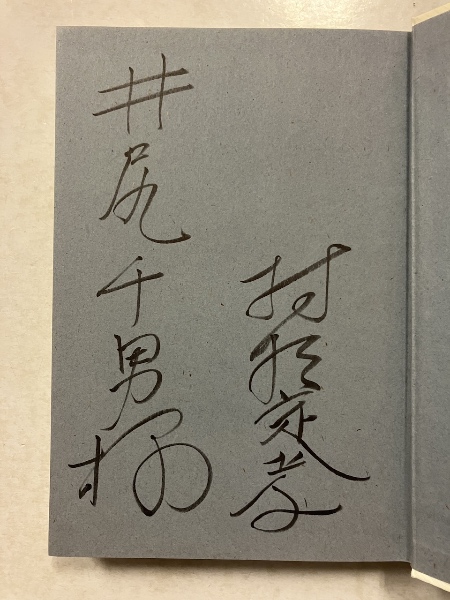 村松定孝
井尻千男様